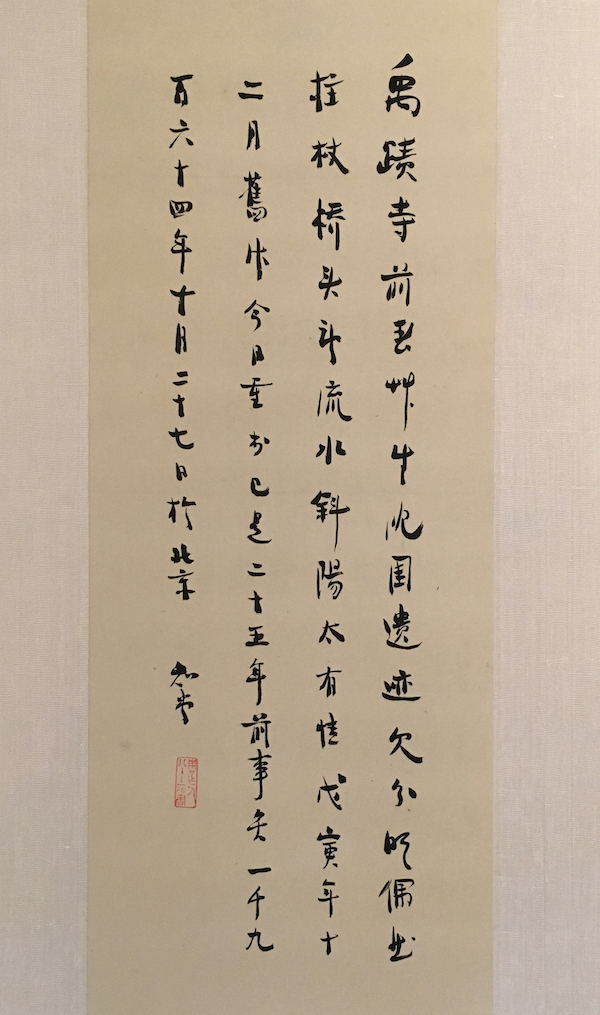 禹蹟寺前春艸生沈園遺迹欠分明偶然
拄杖橋头望流水斜陽太有情戊寅年十
二月舊作今日重书已是二十五年前事矣一千九
百六十四年十月二十七日於北京
知堂